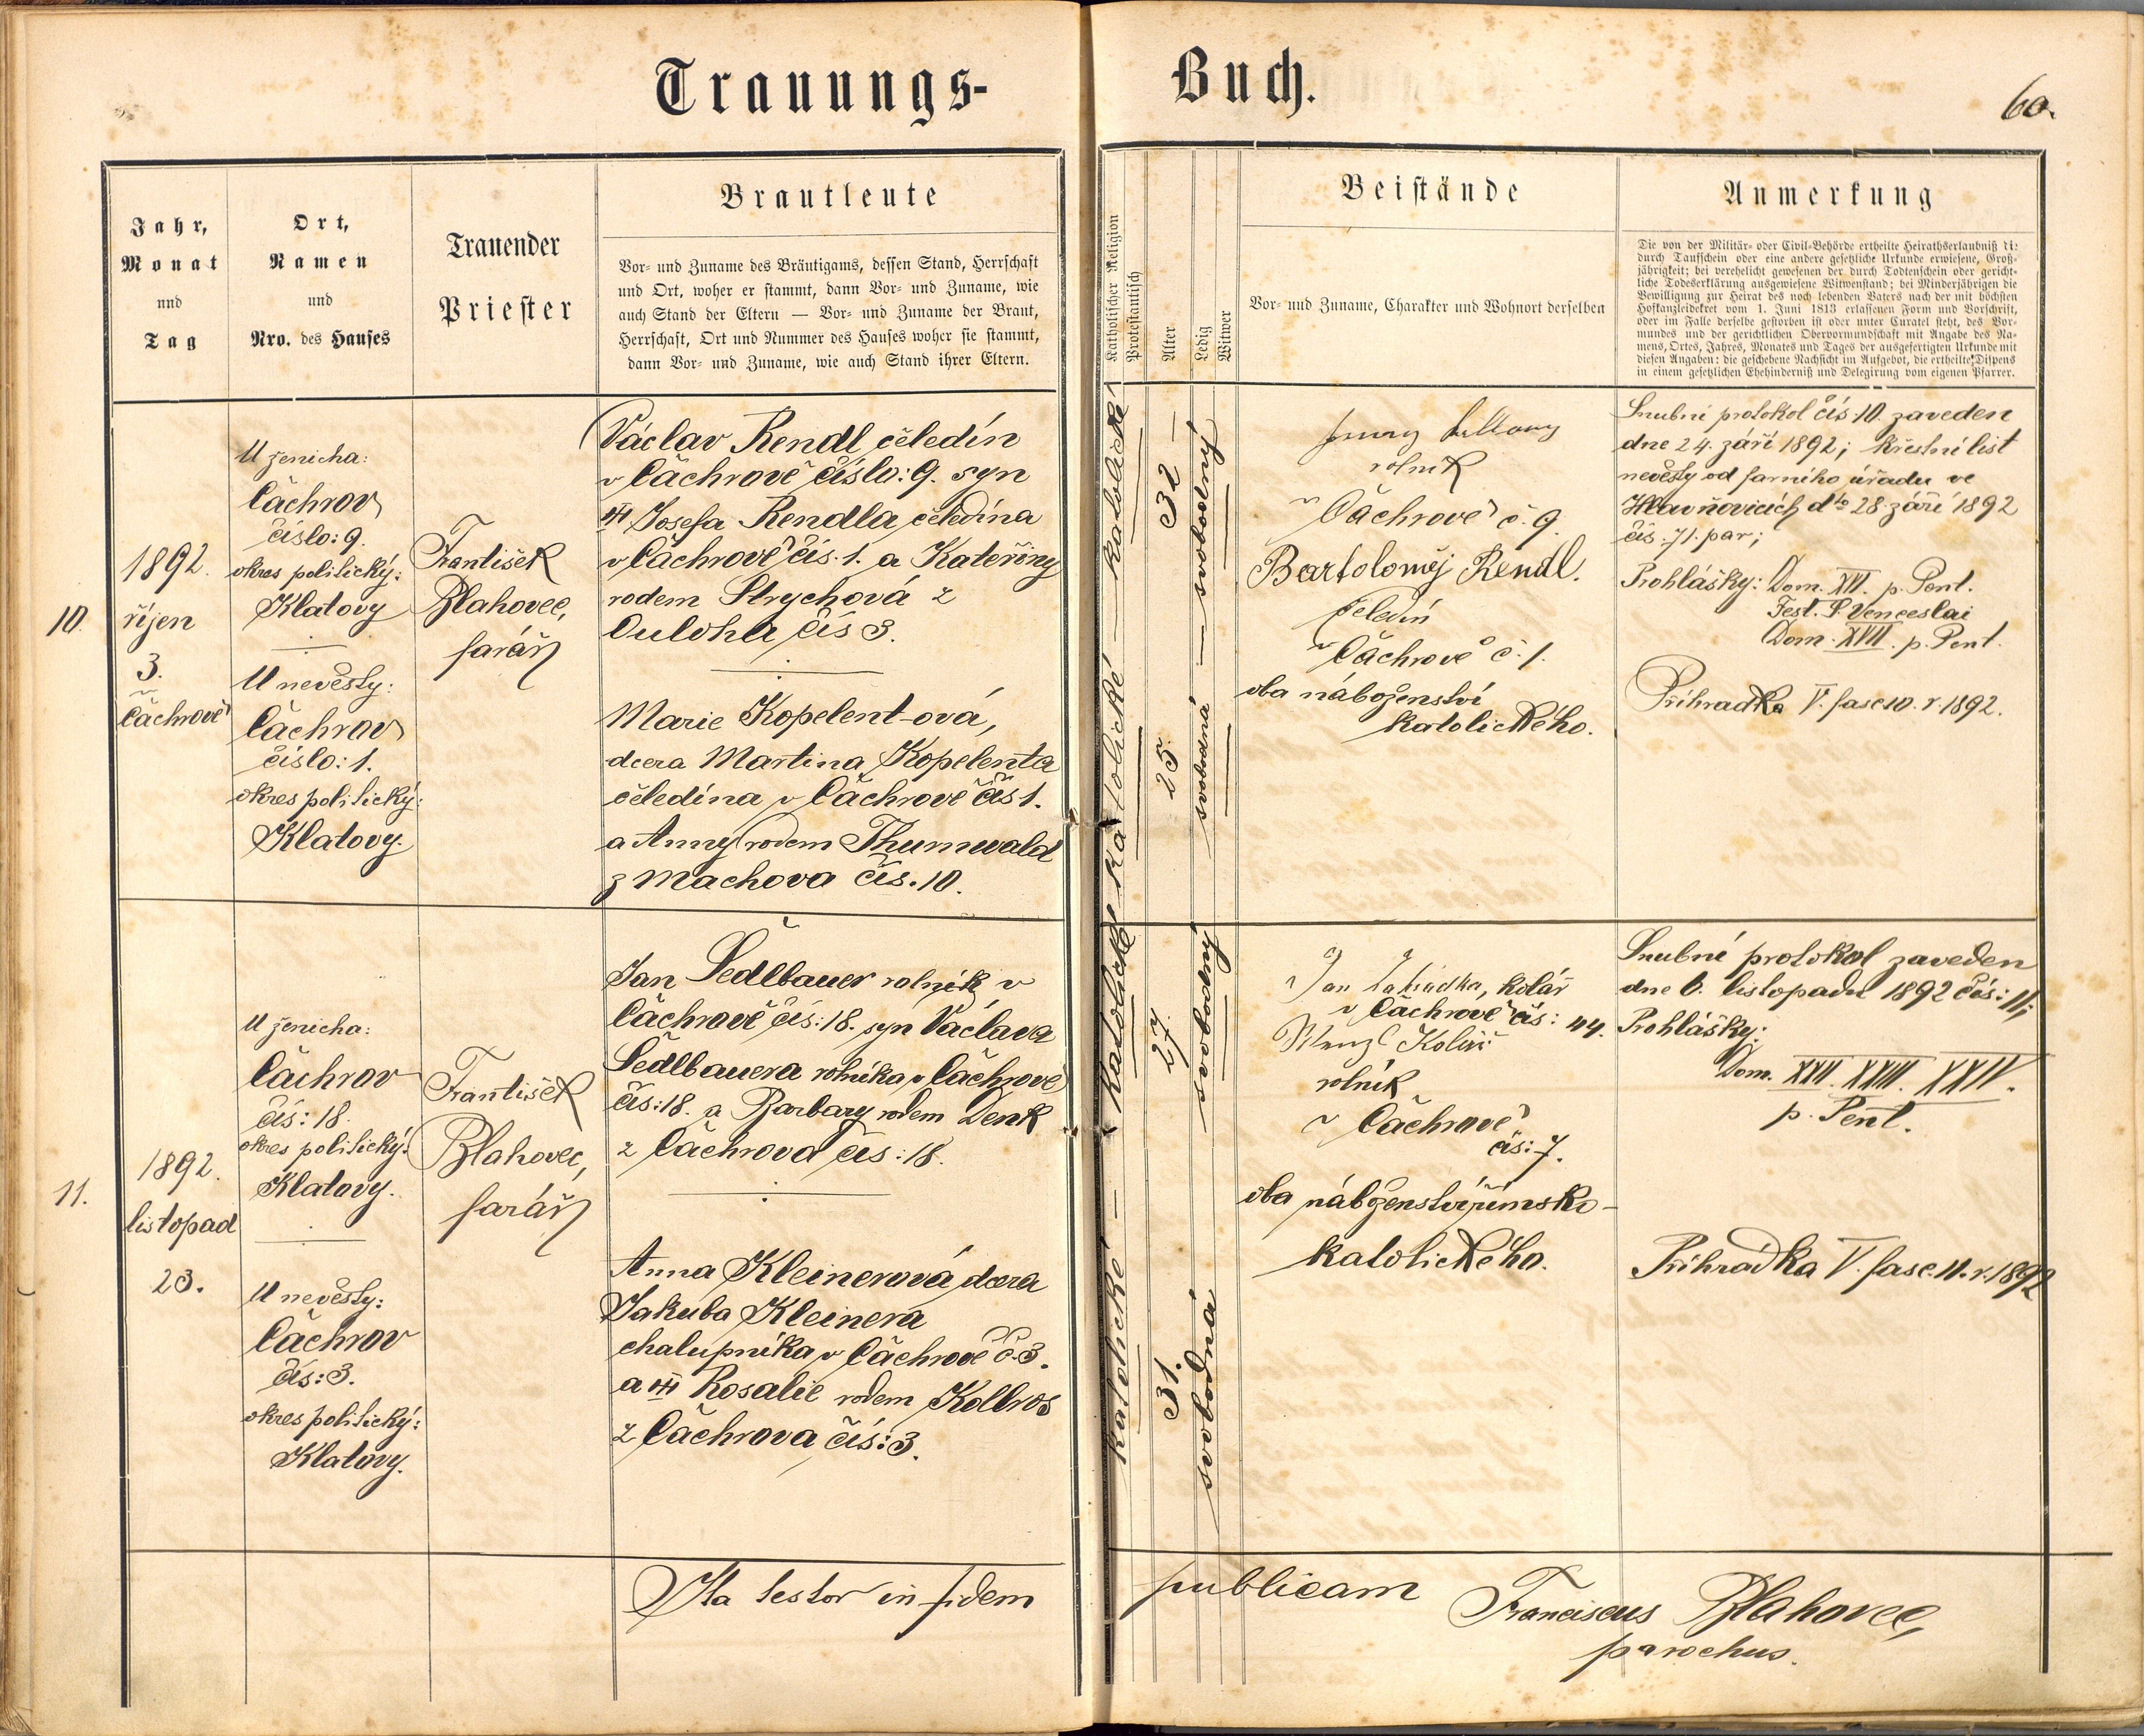 Trauungs-
Buch.
60.
Jahr,
Monat
und
Tag
Ort,
Namen
und
Nro. des Hauses
Trauender
Priester
Brautleute
Vor- und Zuname des Bräutigams, dessen Stand, Herrschaft
und Ort, woher er stammt, dann Vor- und Zuname, wie
auch Stand der Eltern — Vor- und Zuname der Braut,
Herrschaft, Ort und Nummer des Hauses woher sie stammt,
dann Vor- und Zuname, wie auch Stand ihrer Eltern.
Katholischer Religion
Protestantisch
Alter
Ledig
Witwer
Beistände
Vor- und Zuname, Charakter und Wohnort derselben
Anmerkung
Die von der Militär- oder Civil-Behörde ertheilte Heirathserlaubniß di:
durch Taufschein oder eine andere gesetzliche Urkunde erwiesene, Groß-
jährigkeit; bei verehelicht gewesenen der durch Todtenschein oder gericht-
liche Todeserklärung ausgewiesene Witwenstand; bei Minderjährigen die
Bewilligung zur Heirat des noch lebenden Vaters nach der mit höchsten
Hofkanzleidekret vom 1. Juni 1813 erlassenen Form und Vorschrift,
oder im Falle derselbe gestorben ist oder unter Curatel steht, des Vor-
mundes und der gerichtlichen Obervormundschaft mit Angabe des Na-
mens, Ortes, Jahres, Monates und Tages der ausgefertigten Urkunde mit
diesen Angaben; die geschehene Nachsicht im Aufgebot, die ertheilte Dispens
in einem gesetzlichen Ehehinderniß und Delegirung vom eigenen Pfarrer.
10.
1892.
říjen
3.
v Čachrově
U ženicha:
Čachrov
číslo: 9.
okres politický:
Klatovy
U nevěsty:
Čachrov
číslo: 1.
okres politický:
Klatovy.
František
Blahovec,
farář
Václav Rendl čeledín
v Čachrově číslo: 9. syn
Josefa Rendla, čeledína
v Čachrově čís. 1. a Kateřiny
rodem Strychová z
Ouloha čís 3.
Marie Kopelent-ová,
dcera Martina Kopelenta
čeledína v Čachrově čís 1.
a Anny rodem Thurnwald
z Machova čís. 10.
katolické — katolické
32 —
svobodný
25.
svobodná
rolník
v Čachrově č. 9.
Bartoloměj Rendl.
čeledín
v Čachrově č. 1.
oba náboženství
katolického.
Snubní protokol čís: 10. zaveden
dne 24. září 1892; křestní list
nevěsty od farního úřadu ve
Hlavňovicích dto 28. září 1892
čís. 71. par;
Prohlášky: Dom. XVI. p. Pent.
Fest. S. Venceslai
Dom. XVII. p. Pent.
Přihradka V. fasc 10. r. 1892.
11.
1892.
listopad
23.
U ženicha:
Čachrov
čís: 18.
okres politický:
Klatovy.
U nevěsty:
Čachrov
čís: 3.
okres politický:
Klatovy.
František
Blahovec,
farář
Jan Šedlbauer rolník v
Čachrově čís: 18. syn Václava
Šedlbauera rolníka v Čachrově
čís: 18. a Barbary rodem Denk
z Čachrova čís: 18.
Anna Kleinerová dcera
Jakuba Kleinera
chalupníka v Čachrově č. 3.
a Rosalie rodem Kollros
z Čachrova čís: 3.
katolické — katolické
27.
svobodný
31.
svobodná
Jan, kolář
v Čachrově čís: 44.
Wenzl
rolník
v Čachrově
čís: 7.
oba náboženství římsko-
katolického.
Snubní protokol zaveden
dne 6. listopadu 1892 čís: 11;
Prohlášky:
Dom. XXII. XXIII. XXIV.
p. Pent.
Přihradka V. fasc. 11. r. 1892
Ita testor in fidem
publicam
Franciscus Blahovec,
parochus.